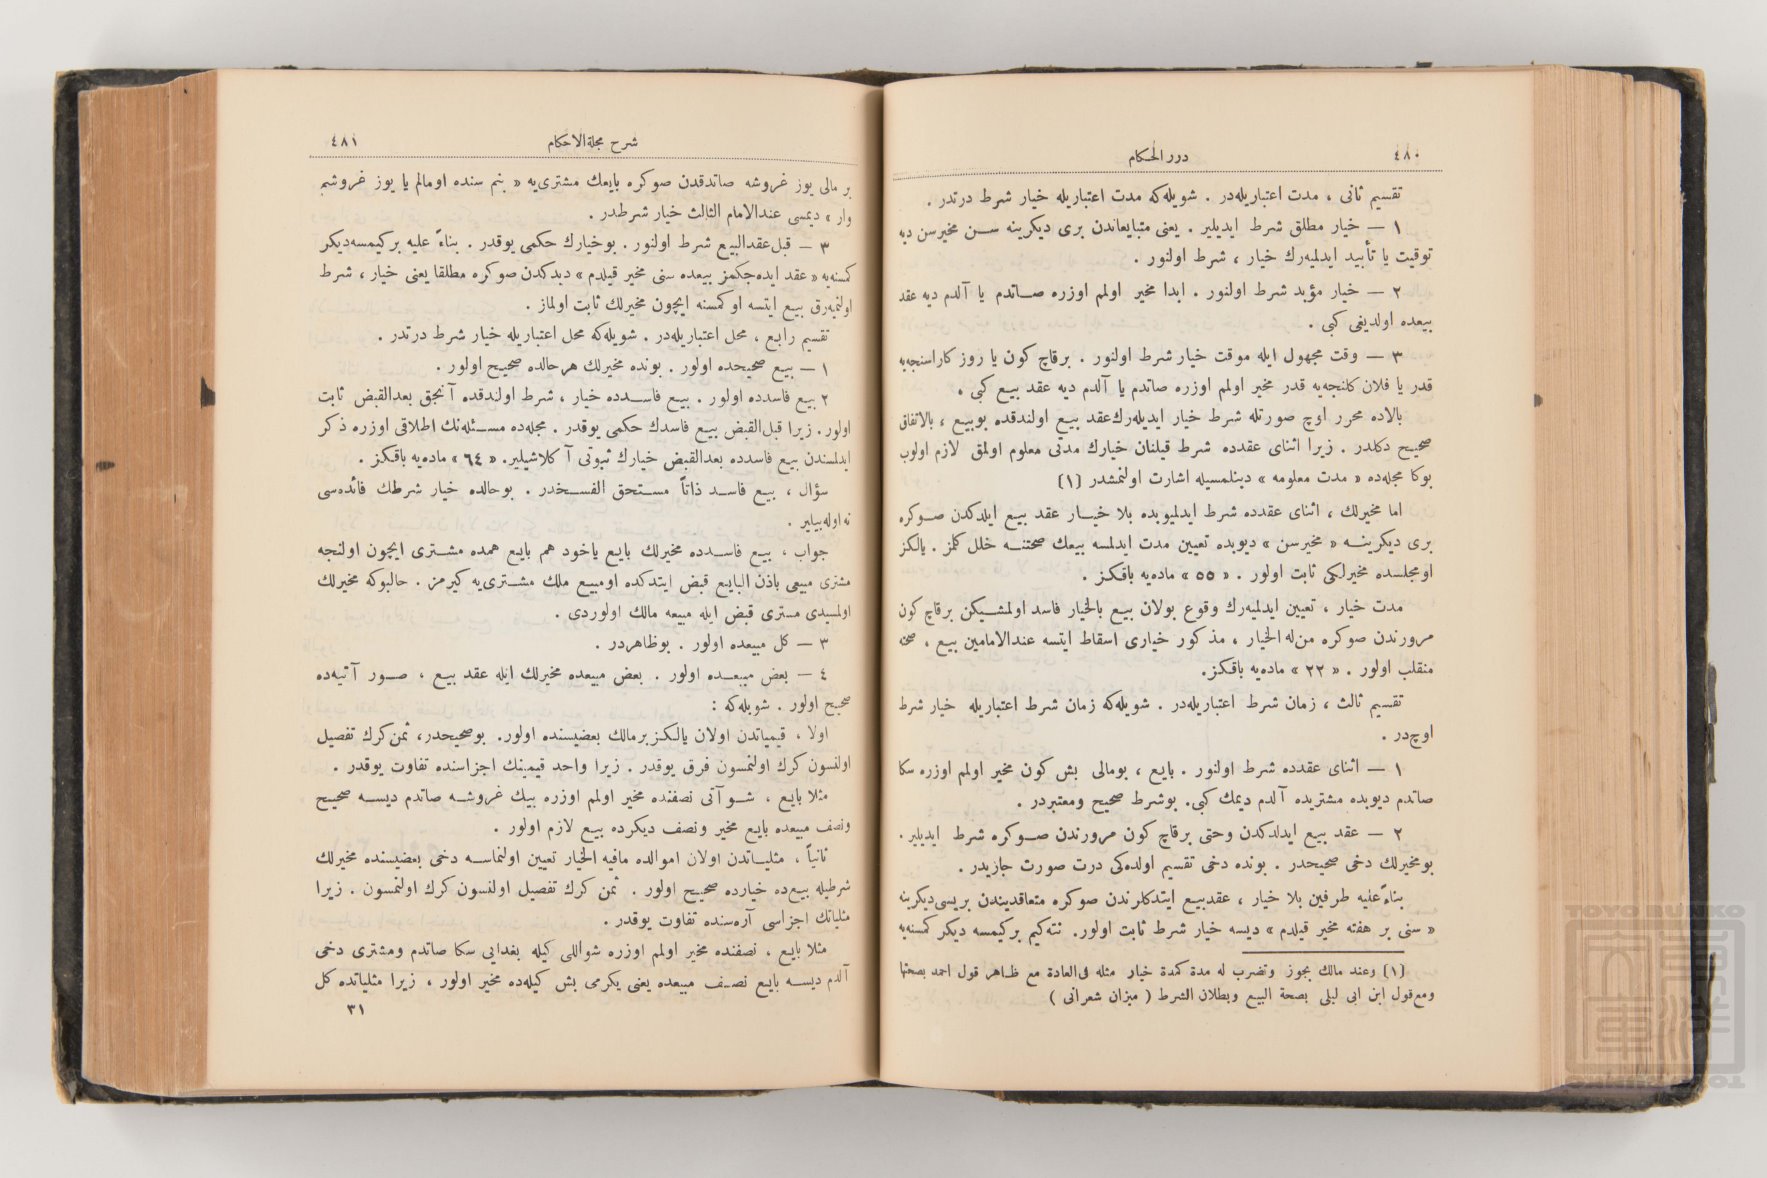 ٤٨٠
درر الحكام
تقسيم ثانى ، مدت اعتباريله‌در . شويله‌كه مدت اعتباريله خيار شرط درتدر .
١ — خيار مطلق شرط ايديلير . يعنى متبايعاندن برى ديكرينه ســن مخيرسن ديه
توقيت يا تأبيد ايدلميه‌رك خيار ، شرط اولنور .
٢ — خيار مؤبد شرط اولنور . ابدا مخير اولمم اوزره صــاتدم يا آلدم ديه عقد
بيعده اولديغى كبى .
٣ — وقت مجهول ايله موقت خيار شرط اولنور . برقاچ كون يا روز كاراسنجه‌يه
قدر يا فلان كلنجه‌يه قدر مخير اولمم اوزره صاتدم يا آلدم ديه عقد بيع كبى .
بالاده محرر اوچ صورتله شرط خيار ايديله‌رك‌عقد بيع اولندقده بوبيع ، بالاتفاق
صحيح دكلدر . زيرا اثناى عقدده شرط قيلنان خيارك مدتى معلوم اولمق لازم اولوب
بوكا مجله‌ده « مدت معلومه » دينلمسيله اشارت اولنمشدر (١)
اما مخيرلك ، اثناى عقدده شرط ايدلميوبده بلا خيــار عقد بيع ايلدكدن صــوكره
برى ديكرينــه « مخيرسن » ديوبده تعيين مدت ايدلمسه بيعك صحتنــه خلل كلمز . يالكز
اومجلسده مخيرلكى ثابت اولور . « ٥٥ » ماده‌يه باقكز .
مدت خيار ، تعيين ايدلميه‌رك وقوع بولان بيع بالخيار فاسد اولمشــيكن برقاچ كون
مرورندن صوكره من‌له الخيار ، مذكور خيارى اسقاط ايتسه عندالامامين بيع ، صحته
منقلب اولور . « ٢٢ » ماده‌يه باقكز.
تقسيم ثالث ، زمان شرط اعتباريله‌در . شويله‌كه زمان شرط اعتباريله خيار شرط
اوچ‌در .
١ — اثناى عقدده شرط اولنور . بايع ، بومالى بش كون مخير اولمم اوزره سكا
صاتدم ديوبده مشتريده آلدم ديمك كبى. بوشرط صحيح ومعتبردر .
٢ — عقد بيع ايدلدكدن وحتى برقاچ كون مرورندن صــوكره شرط ايديلير .
بومخيرلك دخى صحيحدر . بونده دخى تقسيم اولده‌كى درت صورت جاريدر .
بناءً عليه طرفين بلا خيار ، عقدبيع ايتدكلرندن صوكره متعاقديندن بريسى‌ديكرينه
« سنى بر هفته مخير قيلدم » ديسه خيار شرط ثابت اولور. نته‌كيم بركيمسه ديكر كمسنه‌يه
(١) وعند مالك يجوز وتضرب له مدة كمدة خيار مثله فى‌العادة مع ظاهر قول احمد بصحتها
ومع‌قول ابن ابى ليلى بصحة البيع وبطلان الشرط ( ميزان شعرانى )
شرح مجلةالاحكام
٤٨١
بر مالى يوز غروشه صاتدقدن صوكره بايعك مشترى‌يه « بنم سنده اومالم يا يوز غروشم
وار » ديمسى عندالامام الثالث خيار شرطدر .
٣ — قبل‌عقدالبيع شرط اولنور . بوخيارك حكمى يوقدر . بناءً عليه بركيمسه‌ديكر
كمسنه‌يه « عقد ايده‌جكمز بيعده سنى مخير قيلدم » ديدكدن صوكره مطلقا يعنى خيار ، شرط
اولنميه‌رق بيع ايتسه او كمسنه ايچون مخيرلك ثابت اولماز .
تقسيم رابع ، محل اعتباريله‌در . شويله‌كه محل اعتباريله خيار شرط درتدر .
١ — بيع صحيحده اولور . بونده مخيرلك هرحالده صحيح اولور .
٢ بيع فاسدده اولور . بيع فاســدده خيار ، شرط اولندقده آنجق بعدالقبض ثابت
اولور . زيرا قبل‌القبض بيع فاسدك حكمى يوقدر . مجله‌ده مســئله‌نك اطلاقى اوزره ذكر
ايدلمسندن بيع فاسدده بعدالقبض خيارك ثبوتى آكلاشيلير. « ٦٤ » ماده‌يه باقكز .
سؤال ، بيع فاسـد ذاتاً مســتحق الفســخدر . بوحالده خيار شرطك فائده‌سى
نه اوله‌بيلير .
جواب ، بيع فاســدده مخيرلك بايع ياخود هم بايع همده مشــترى ايچون اولنجه
مشترى مبيعى باذن البايع قبض ايتدكده اومبيع ملك مشــترى‌يه كيرمز . حالبوكه مخيرلك
اولمسيدى مشترى قبض ايله مبيعه مالك اولوردى .
٣ — كل مبيعده اولور . بوظاهردر .
٤ — بعض مبيعــده اولور . بعض مبيعده مخيرلك ايله عقد بيع ، صــور آتيه‌ده
صحيح اولور . شويله‌كه :
اولا ، قيمياتدن اولان يالكز برمالك بعضيسنده اولور. بوصحيحدر، ثمن‌كرك تفصيل
اولنسون كرك اولنمسون فرق يوقدر . زيرا واحد قيمينك اجزاسنده تفاوت يوقدر .
مثلا بايع ، شــو آتى نصفنده مخير اولمم اوزره بيك غروشــه صاتدم ديســه صحيح
ونصف مبيعده بايع مخير ونصف ديكرده بيع لازم اولور .
ثانياً ، مثلياتدن اولان اموالده مافيه الخيار تعيين اولنماســه دخى بعضيسنده مخيرلك
شرطيله بيع‌ده خيارده صحيح اولور . ثمن كرك تفصيل اولنسون كرك اولنمسون . زيرا
مثلياتك اجزاسى آره‌سنده تفاوت يوقدر .
مثلا بايع ، نصفنده مخير اولمم اوزره شواللى كيله بغدايى سكا صاتدم ومشترى دخى
آلدم ديســه بايع نصــف مبيعده يعنى يكرمى بش كيله‌ده مخير اولور ، زيرا مثلياتده كل
٣١
TOYO BUNKO